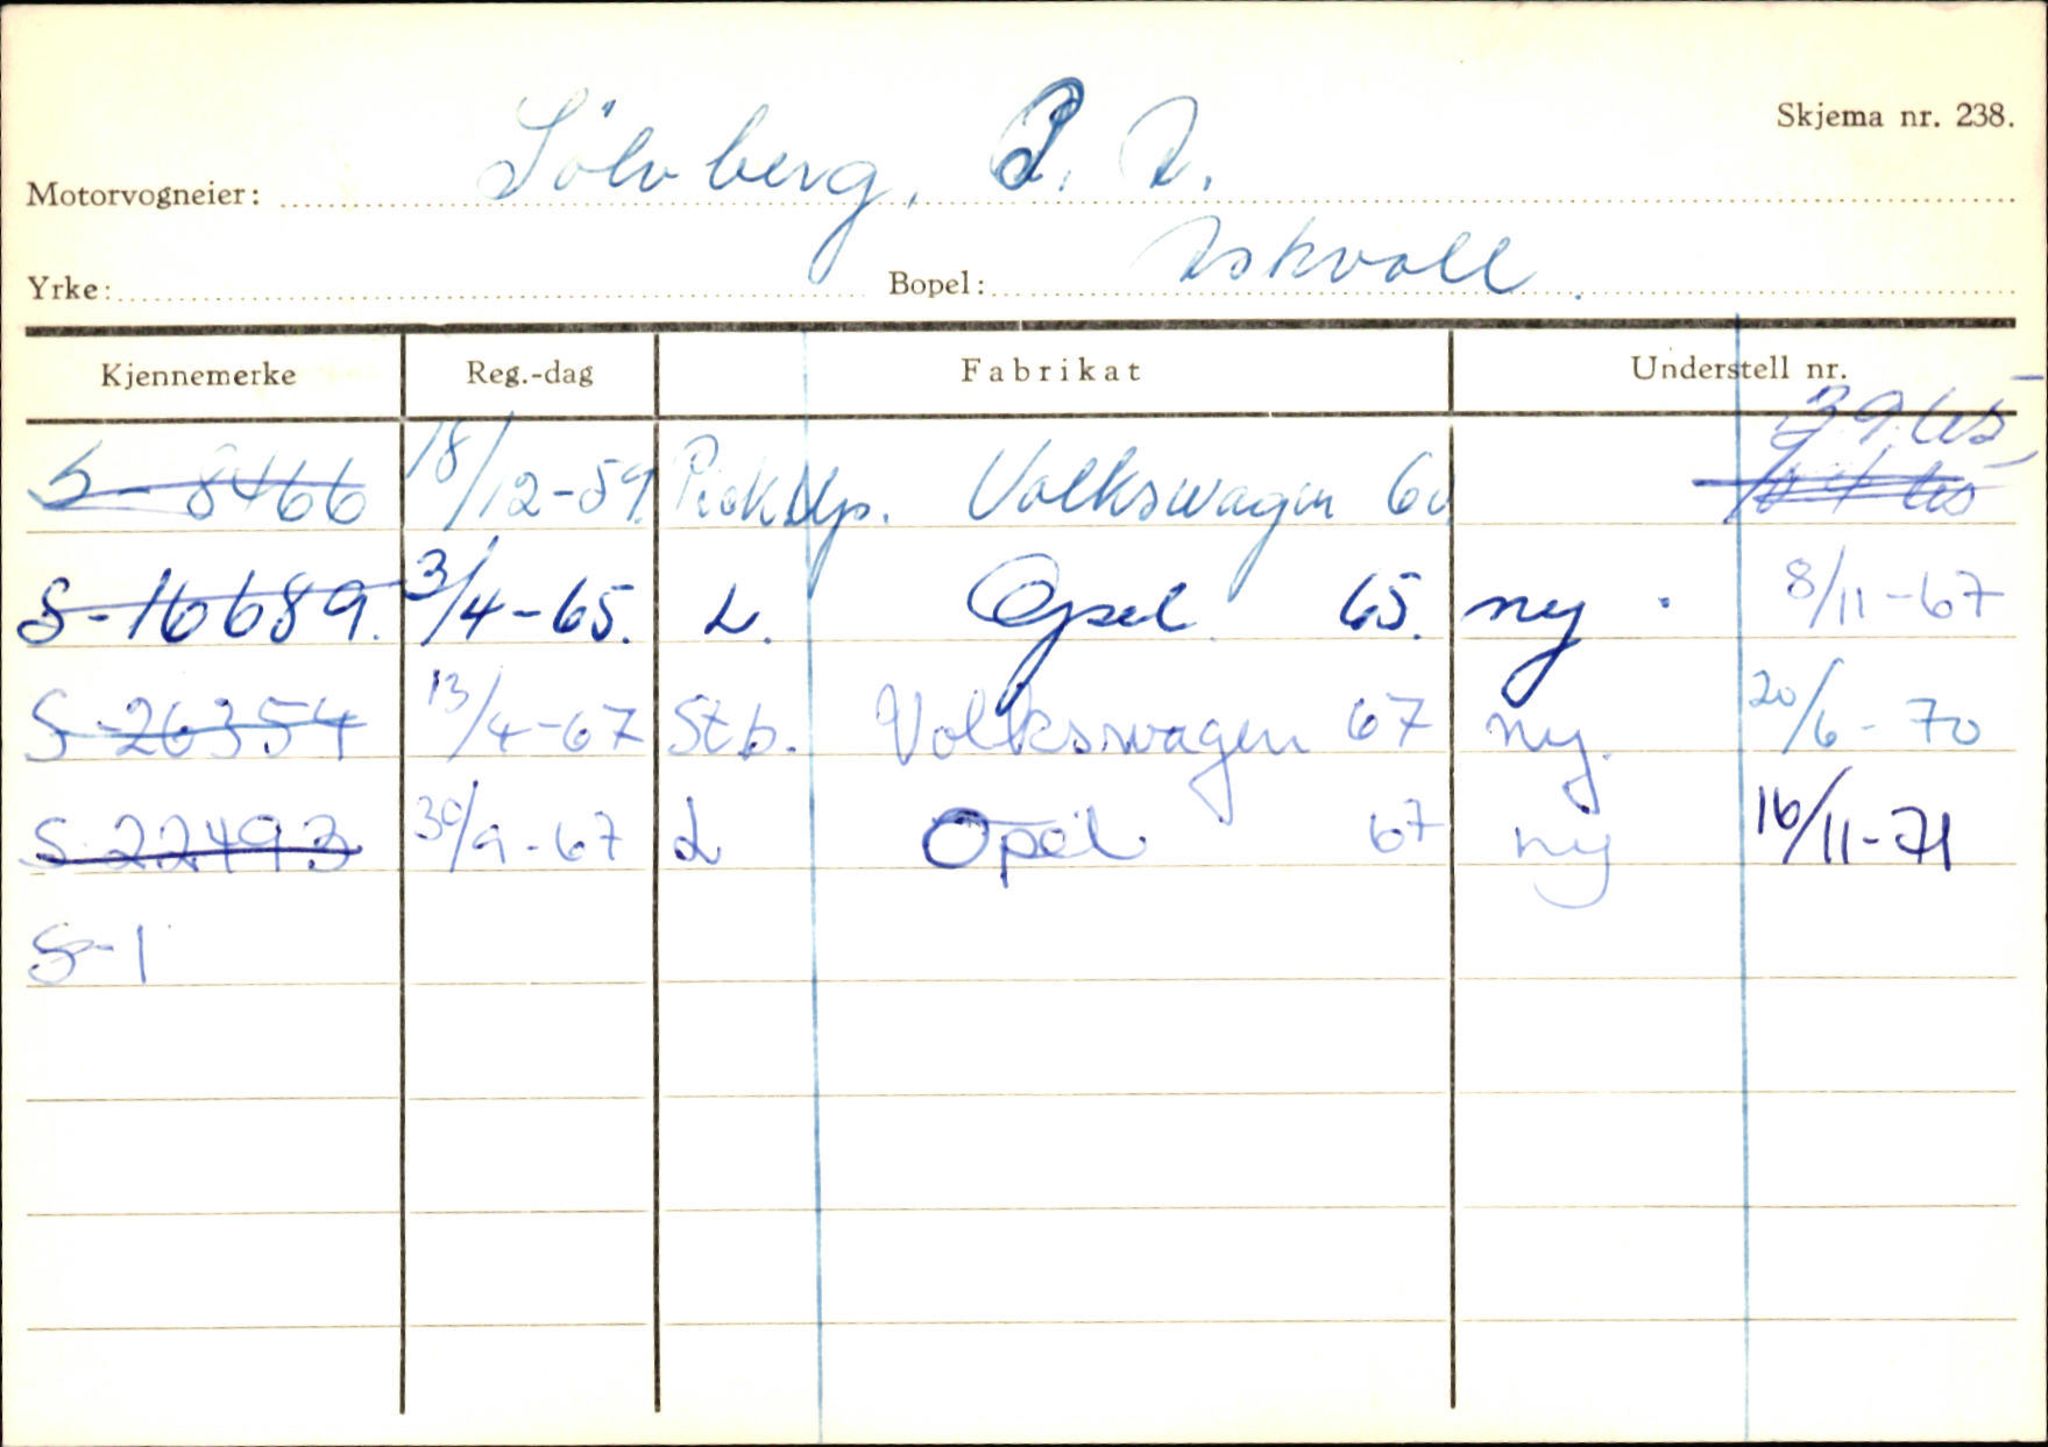 Skjema nr. 238.
Motorvogneier: Sölvberg, P. A.
Yrke: Bopel: Askvoll.
Kjennemerke Reg.-dag Fabrikat Understell nr.
S-8466 18/12-59. PickUp. Volkswagen 60
S-16689. 3/4-65. L. Opel 65. ny. 8/11-67
S-26354 13/4-67 Stb. Volkswagen 67 ny. 20/6-70
S-22493 30/9-67 L Opel 67 ny 16/11-71
S-1